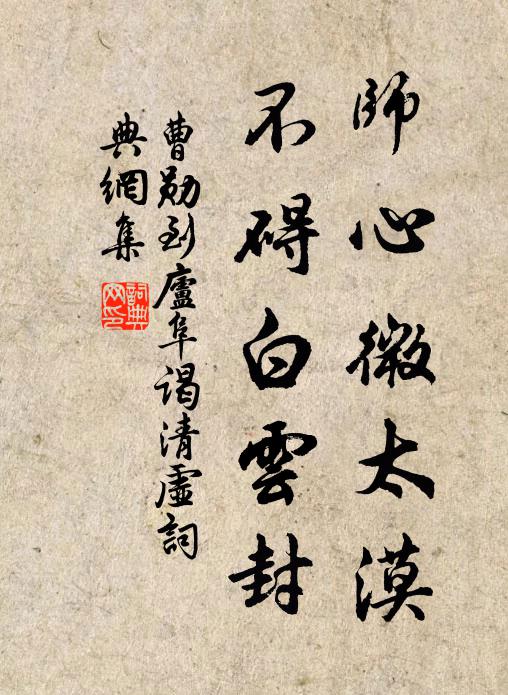 師心微太漠
不碍白雲封
曹勛到廬阜谒清虛詞
典網集
詞典网印